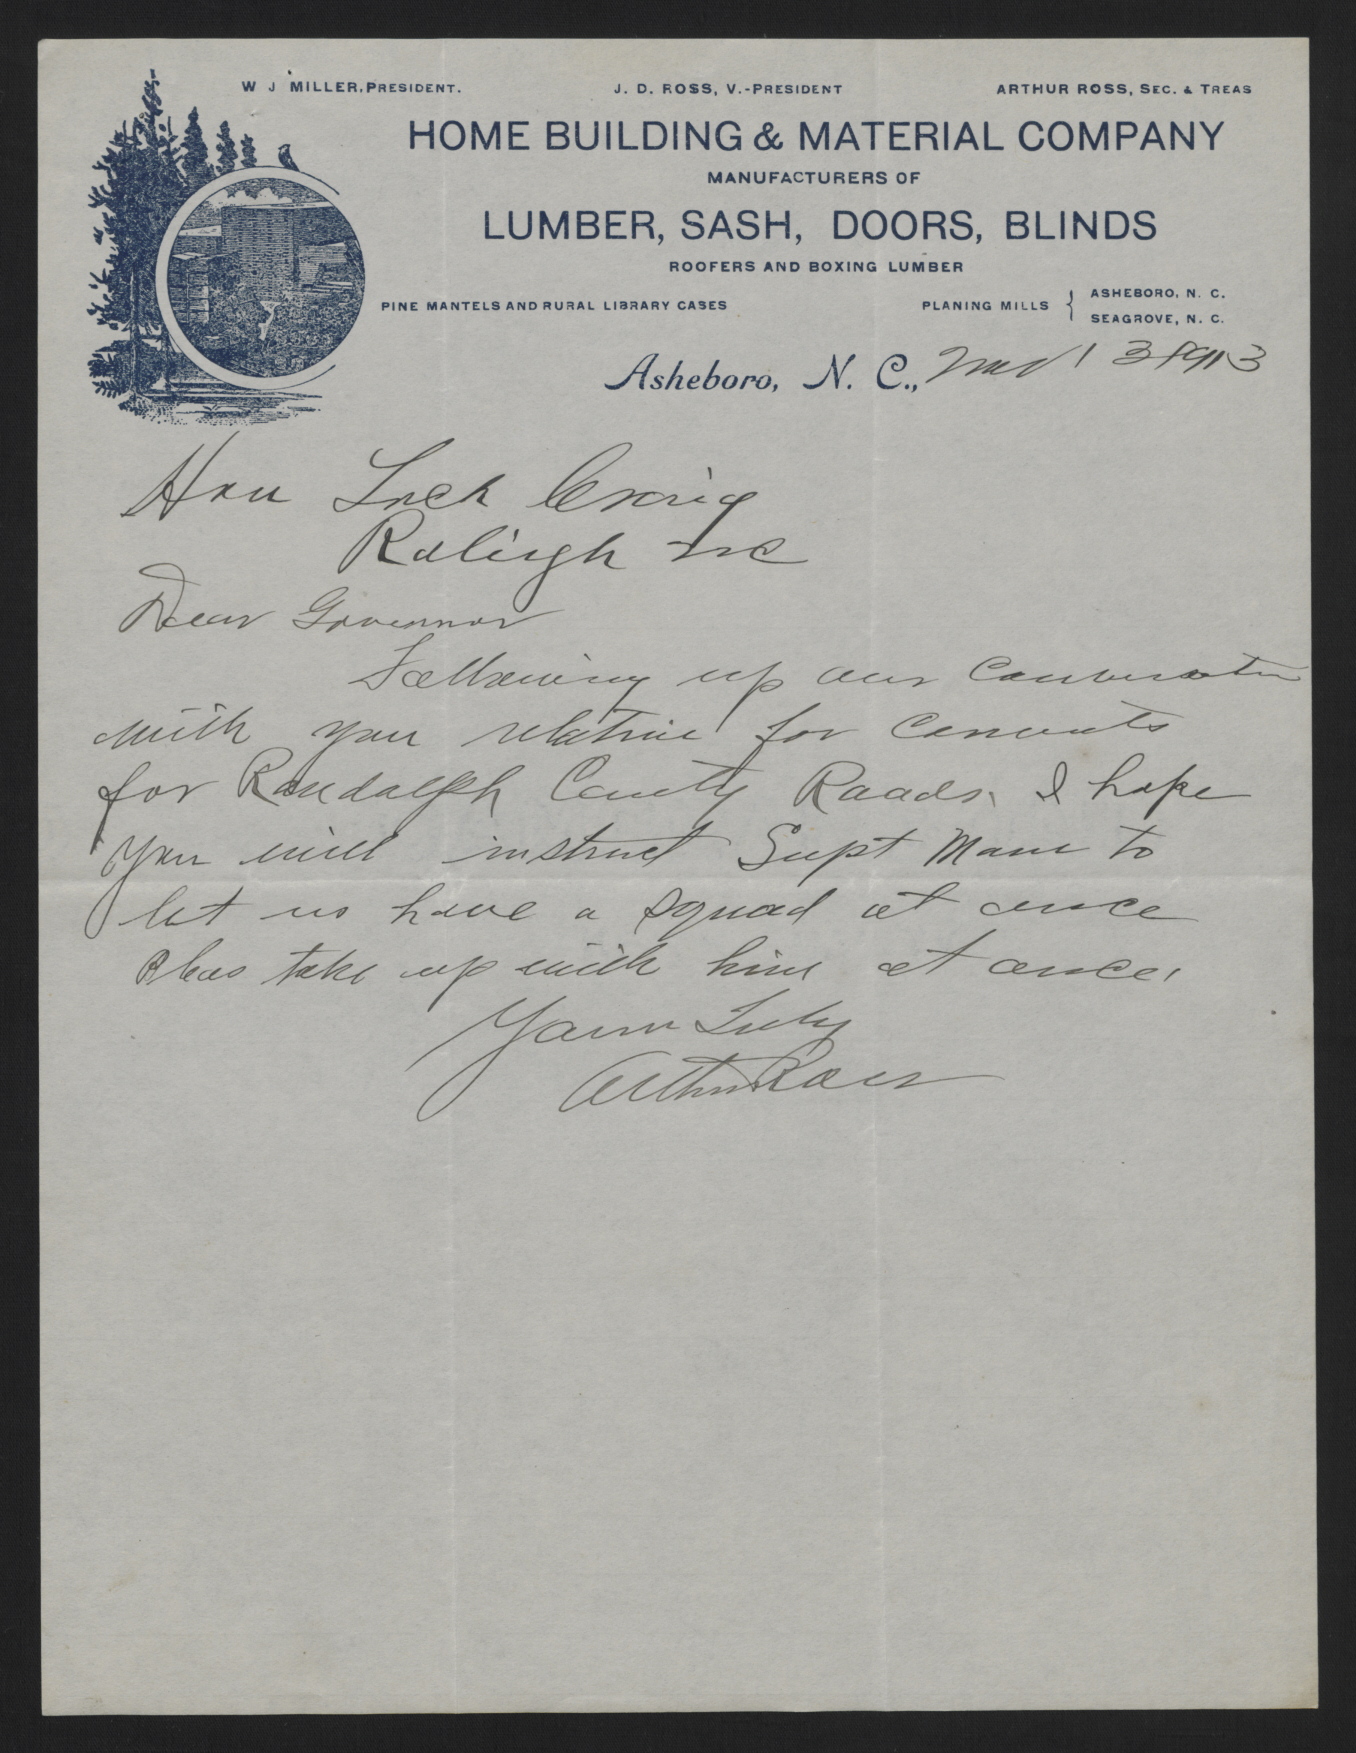 W J MILLER, PRESIDENT.
J. D. ROSS, V.-PRESIDENT
ARTHUR ROSS, SEC. & TREAS
HOME BUILDING & MATERIAL COMPANY
MANUFACTURERS OF
LUMBER, SASH, DOORS, BLINDS
ROOFERS AND BOXING LUMBER
PINE MANTELS AND RURAL LIBRARY CASES
PLANING MILLS { ASHEBORO, N. C.
SEAGROVE, N. C.
Asheboro, N. C., 1913
Hon Lock Craig
Raleigh NC
Dear Governor
Following up our Conversation
with you relative for Convicts
for Randolph County Roads. I hope
you will instruct Supt Mann to
let us have a squad at once
Pleas take up with him at once.
Yours Truly
Arthur Ross